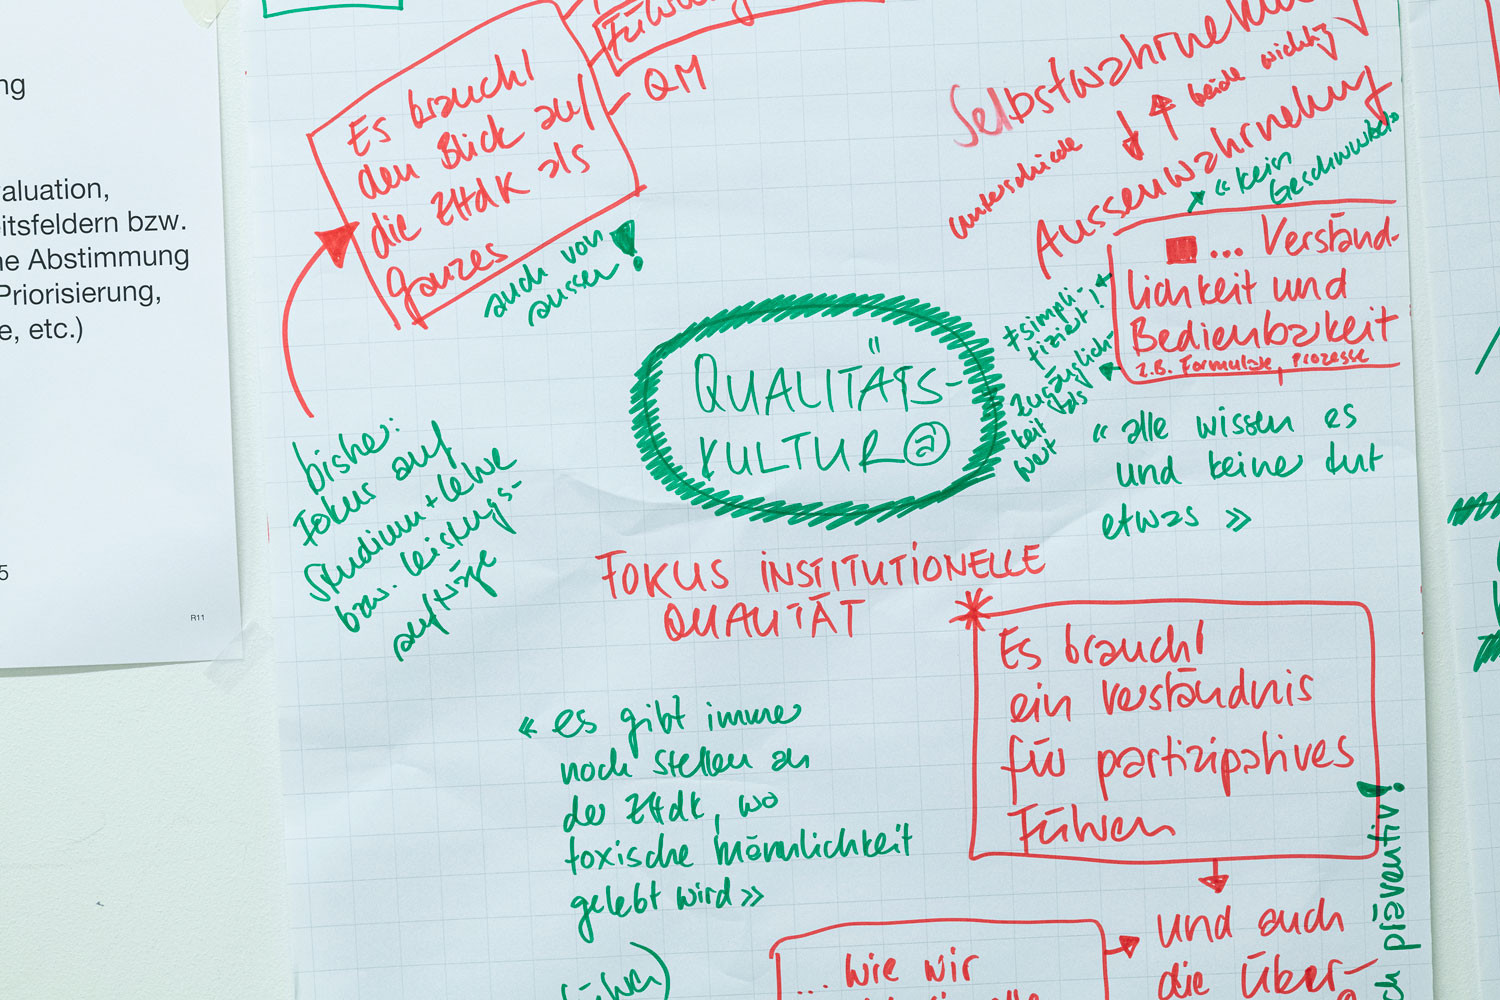 ng
aluation,
eitsfeldern bzw.
ne Abstimmung
Priorisierung,
e, etc.)
5
R11
Es braucht
den Blick auf
die ZHdK als
ganzes
QM
auch von
aussen!
bisher:
Fokus auf
Studium + Lehre
bzw. Leistungs-
aufträge
QUALITÄTS-
KULTUR @
FOKUS INSTITUTIONELLE
QUALITÄT
beide wichtig
unterschiede
Aussenwahrnehmung
« kein
Geschwurbel »
... Verständ-
lichkeit und
Bedienbarkeit
z.B. Formulare, Prozesse
≠ simpli-
fiziert!
zugänglich-
keit
wert
« alle wissen es
und keiner tut
etwas »
Es braucht
ein Verständnis
für partizipatives
Führen
und auch
die Über-
präventiv!
« es gibt immer
noch stellen an
der ZHdK, wo
toxische Männlichkeit
gelebt wird »
... wie wir